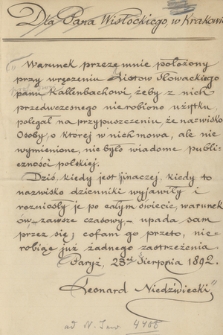 Dla Pana Wisłockiego w Krakowie
Warunek przeze mnie położony
przy wręczeniu Listów Słowackiego
panu Kallenbachowi, żeby z nich
przedwczesnego nie robiono użytku
polegał na przypuszczeniu że nazwisko
Osoby o której w nich mowa, ale nie
wymienione, nie było wiadome publi-
czności polskiej.
Dziś, kiedy jest inaczej, kiedy to
nazwisko dzienniki wyjawiły i
rozniosły je po całym świecie, warunek
ów zawsze czasowy upada sam
przez się; cofam go przeto, nie-
robiąc już żadnego zastrzeżenia.
Paryż, 23 Sierpnia 1892.
Leonard Niedźwiecki